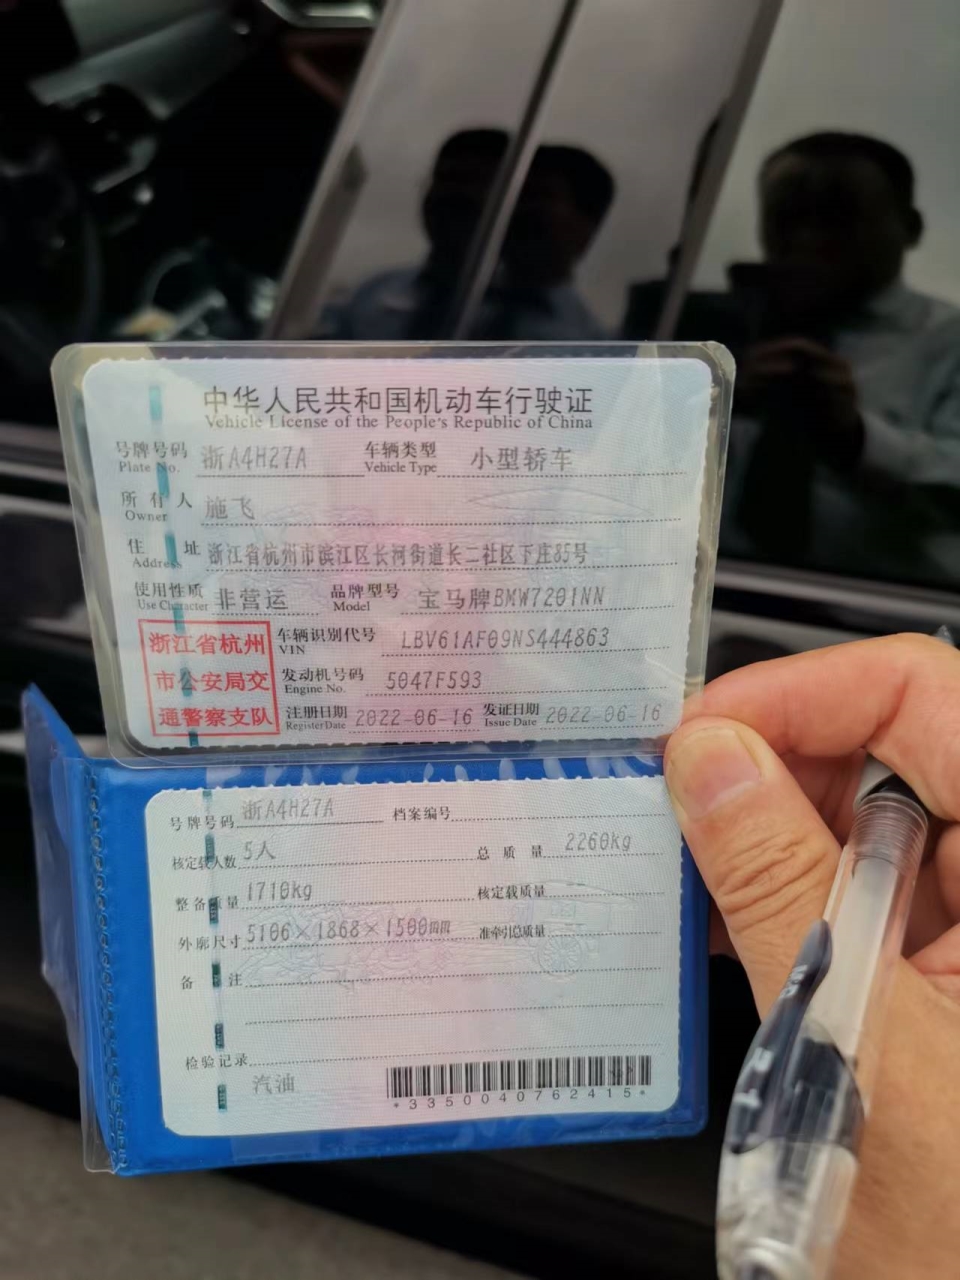 中华人民共和国机动车行驶证
Vehicle License of the People's Republic of China
号牌号码 浙A4H27A 车辆类型 小型轿车
Plate No. Vehicle Type
所有人 施飞
Owner
住址 浙江省杭州市滨江区长河街道长二社区下庄85号
Address
使用性质 非营运 品牌型号 宝马牌BMW7201NN
Use Character Model
浙江省杭州
市公安局交
通警察支队
车辆识别代号 LBV61AF09NS444863
VIN
发动机号码 5047F593
Engine No.
注册日期 2022-06-16 发证日期 2022-06-16
Register Date Issue Date
号牌号码 浙A4H27A 档案编号
核定载人数 5人 总质量 2260kg
整备质量 1710kg 核定载质量
外廓尺寸 5106×1868×1500mm 准牵引总质量
备注
检验记录
汽油
*3350040762415*